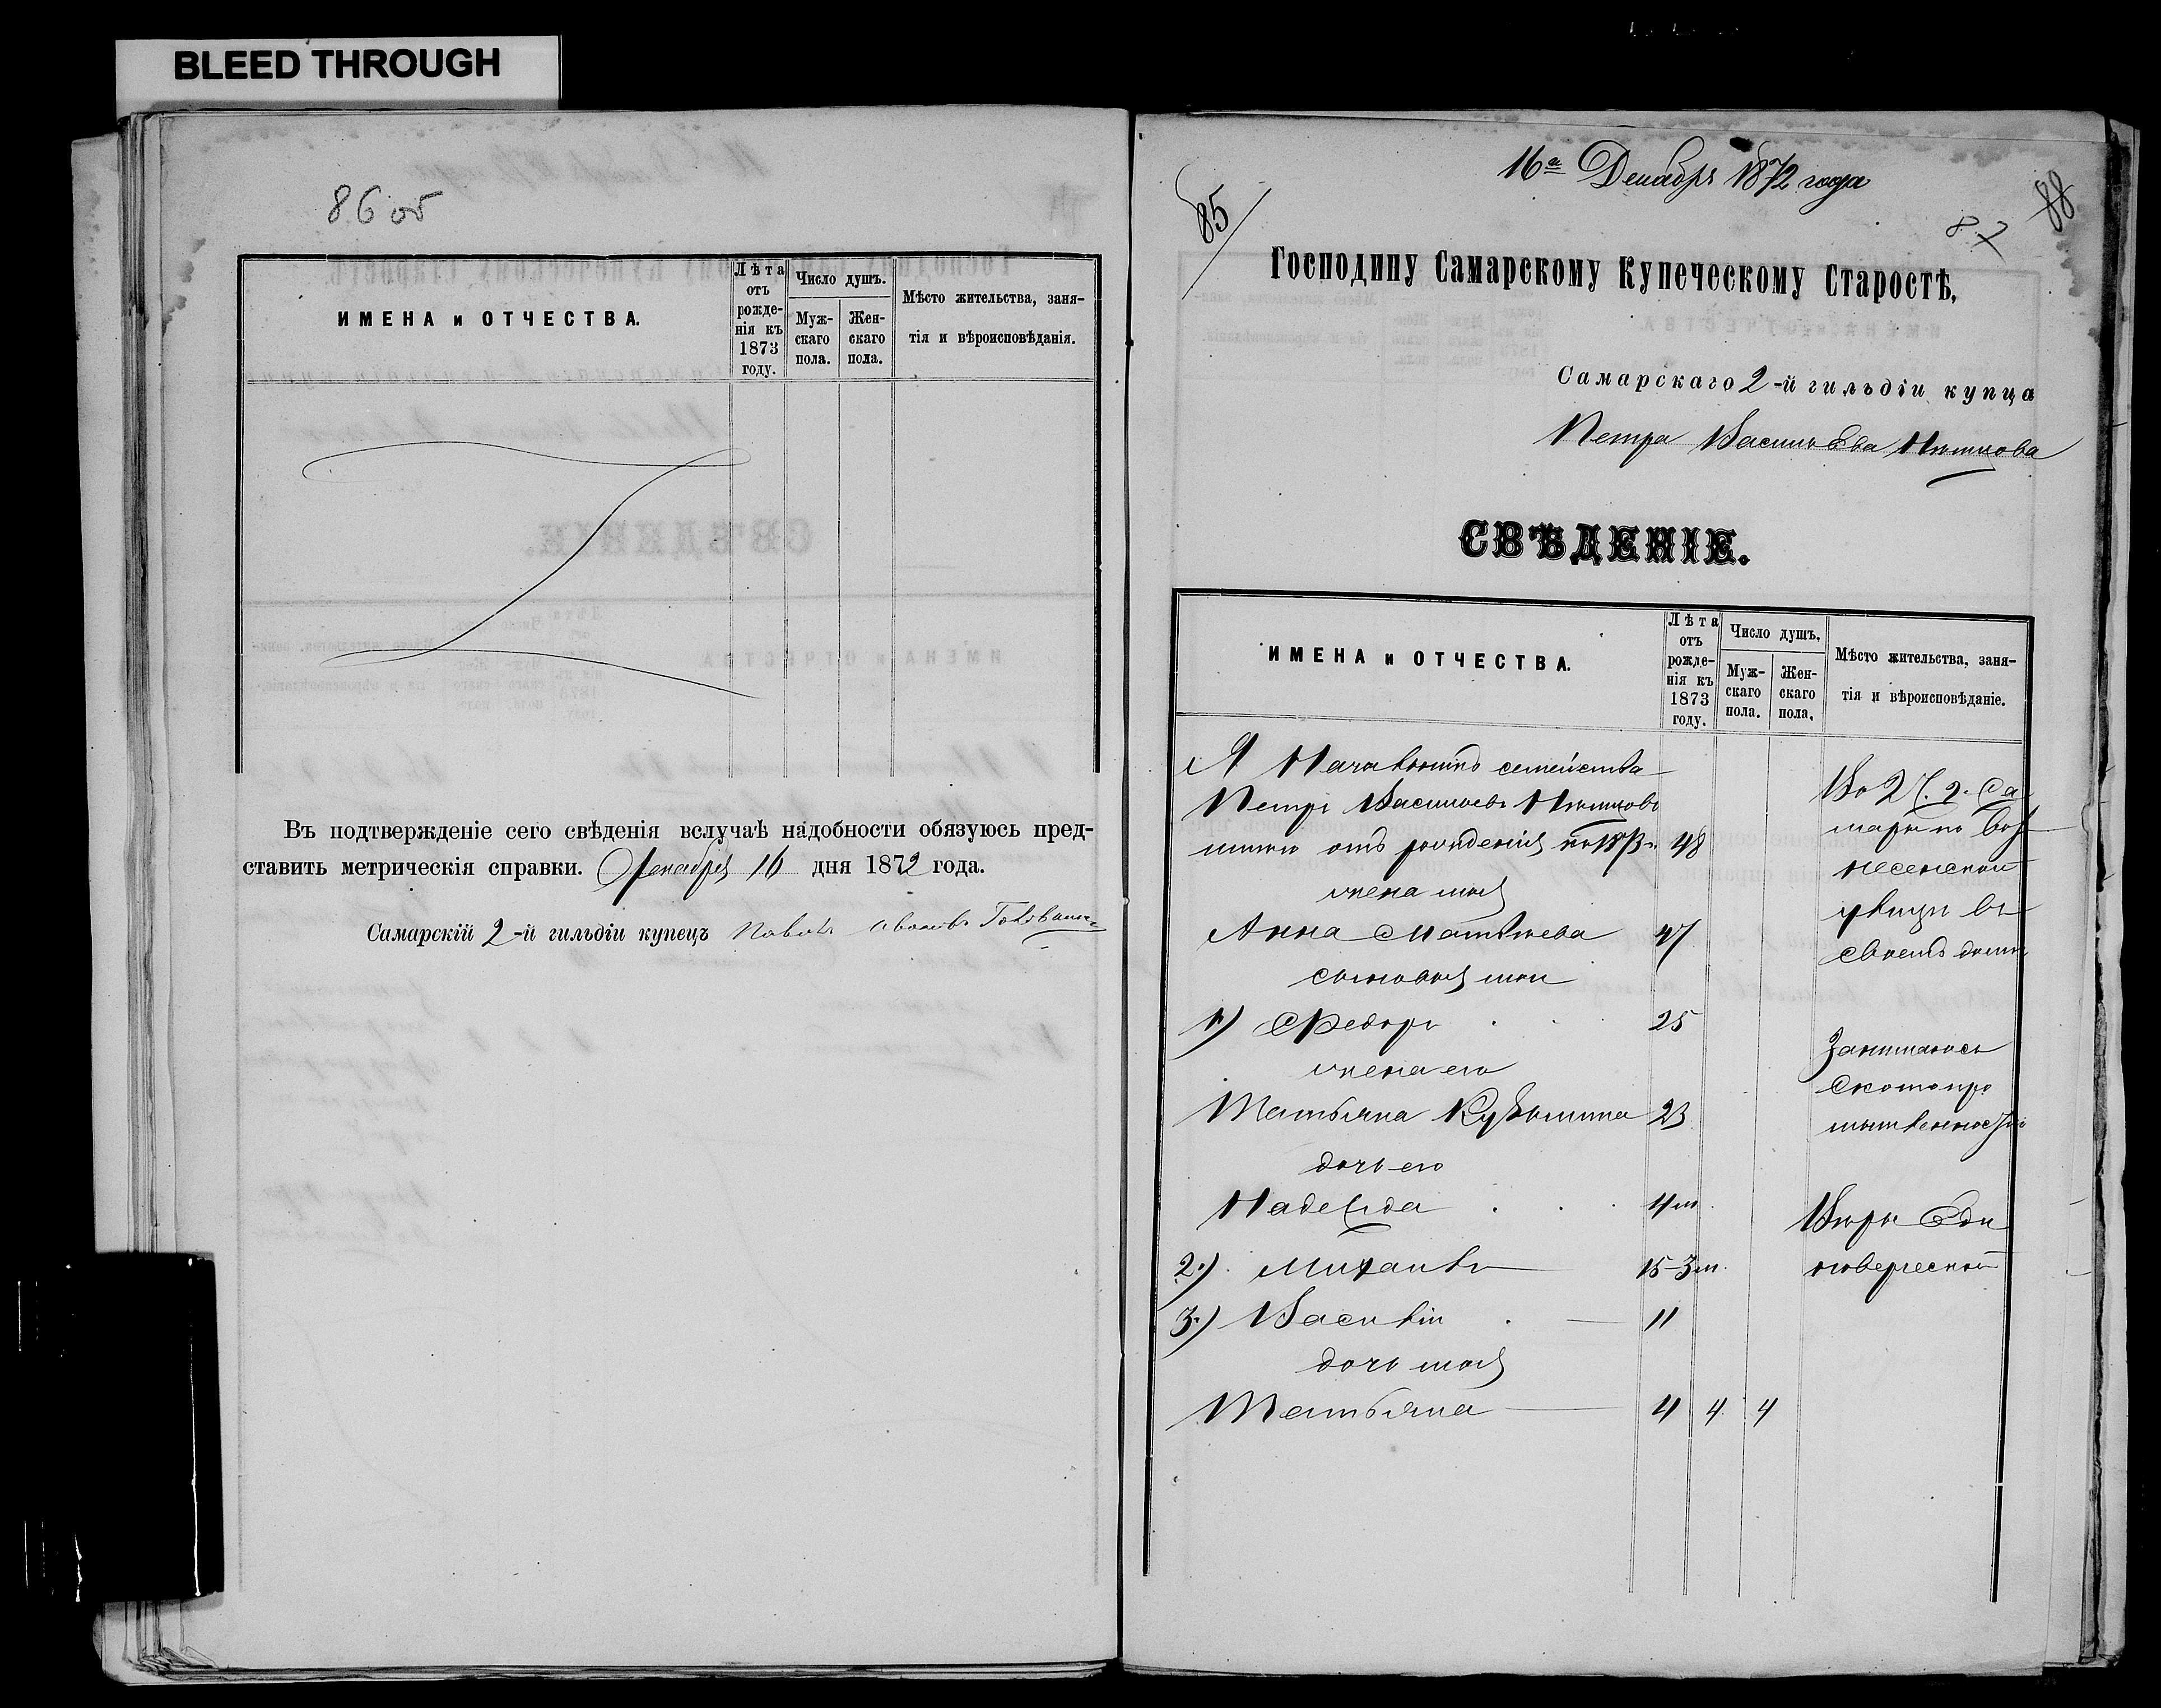 BLEED THROUGH
86 об
ИМЕНА и ОТЧЕСТВА.
Лѣта отъ рожденія къ 1873 году.
Число душъ.
Мужскаго пола.
Женскаго пола.
Мѣсто жительства, заня-
тія и вѣроисповѣданія.
Въ подтвержденіе сего свѣденія вслучаѣ надобности обязуюсь пред-
ставить метрическія справки. Декабря 16 дня 1872 года.
Самарскій 2-й гильдіи купецъ
16а Декабря 1872 года
85
87
88
Господину Самарскому Купеческому Старостѣ,
Самарскаго 2-й гильдіи купца
Петра Васильева
СВѢДЕНІЕ.
ИМЕНА и ОТЧЕСТВА.
Лѣта отъ рожденія къ 1873 году.
Число душъ,
Мужскаго пола.
Женскаго пола,
Мѣсто жительства, заня-
тія и вѣроисповѣданіе.
Я семейства
Петръ Васильевъ
отъ рожденія 48
жена моя
Анна Матвѣева 47
сыновья мои
1) Федоръ 25
жена его
Татьяна Кузьмина 23
дочь его
Надежда 4 м.
2.) Михаилъ 15-3 м.
3.) Василій 11
дочь моя
Татьяна 4 4 4
Во 2 Ч. г. Са
мары по Воз
несенской
улицы въ
своемъ доме
Занимаюсь
Скотопро
мышленностью
Веры Еди
новерческой